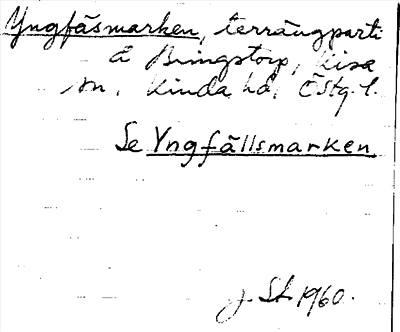 Yngfäsmarken, terrängparti
å Bringstorp, Kisa
sn. Kinda hd, Östg. l.
Se Yngfällsmarken
J. St. 1960.